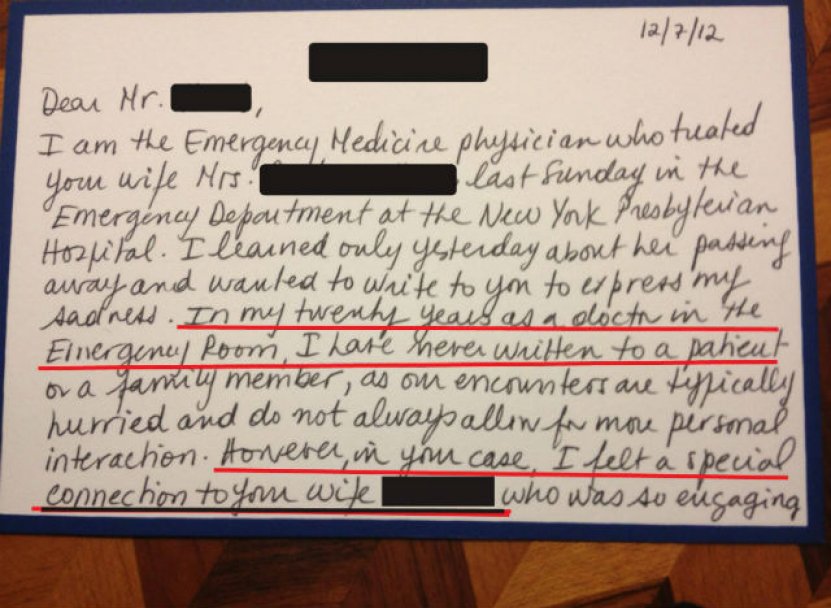 12/7/12
Dear Mr. ,
I am the Emergency Medicine physician who treated
your wife Mrs. last Sunday in the
Emergency Department at the New York Presbyterian
Hospital. I learned only yesterday about her passing
away and wanted to write to you to express my
sadness. In my twenty years as a doctor in the
Emergency Room, I have never written to a patient
or a family member, as our encounters are typically
hurried and do not always allow for more personal
interaction. However, in your case, I felt a special
connection to your wife who was so engaging